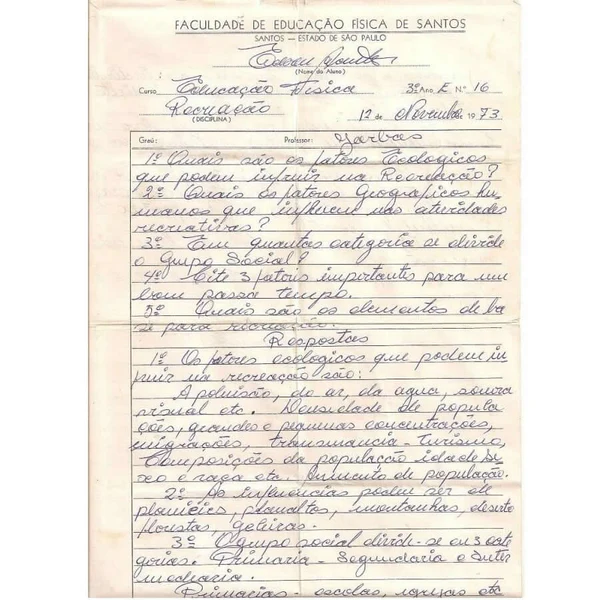 FACULDADE DE EDUCAÇÃO FÍSICA DE SANTOS
SANTOS — ESTADO DE SÃO PAULO
(Nome do Aluno)
Curso Educação Fisica 3º Ano E N.º 16
Recreação 12 de Novembro 1973
(DISCIPLINA)
Grau: Professor: Jarbas
1º Quais são os fatores Ecologicos
que podem influir na Recreação?
2º Quais os fatores Geograficos hu-
manos que influem nas atividades
recriativas?
3º Em quantas categoria se divide
o Grupo Social?
4º Cite 3 fatoris importantes para um
bom passa tempo.
5º Quais são os elementos de ba
se para recriação.
Respostas
1º Os fatores ecologicos que podem in
fluir na recreação são:
A poluisão, do ar, da agua, sonora
visual etc. Densidade de popula
ções, grandes e pequenas concentrações,
migrações, transumancia - turismo,
Composições da população idade se
xo e raça etc. Aumento de população.
2º As infuencias podem ser de
planicies, planaltos, montanhas, deserto
florestas, geleiras.
3º O grupo social divide-se em 3 cate
gorias. Primaria - Segundaria e Inter
mediaria.
Primarias - escolas, igrejas etc